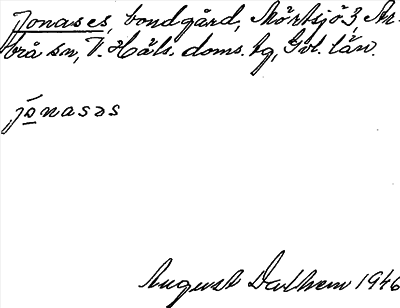 Jonases, bondgård, Mörtsjö 3, Ar-
brå sn, V. Häls. doms. tg, Gvl. län.
jo̲nasəs
August Dalhem 1946